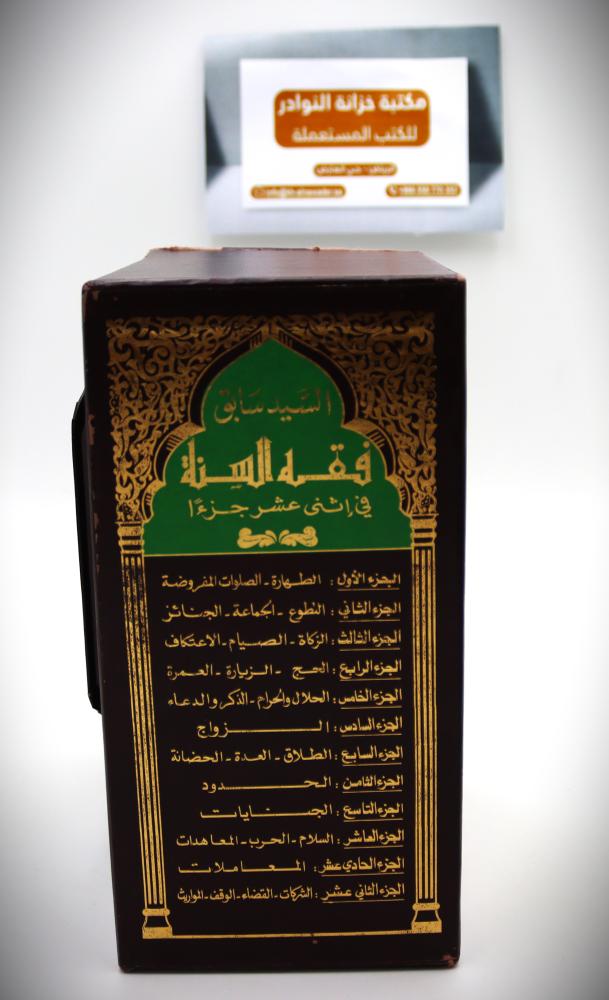 مكتبة خزانة النوادر
للكتب المستعملة
السيد سابق
فقه السنة
في اثنى عشر جزءًا
الجزء الأول : الطهارة - الصلوات المفروضة
الجزء الثاني : التطوع - الجماعة - الجنائز
الجزء الثالث : الزكاة - الصيام - الاعتكاف
الجزء الرابع : الحج - الزيارة - العمرة
الجزء الخامس : الحلال والحرام - الذكر والدعاء
الجزء السادس : الزواج
الجزء السابع : الطلاق - العدة - الحضانة
الجزء الثامن : الحدود
الجزء التاسع : الجنايات
الجزء العاشر : السلام - الحرب - المعاهدات
الجزء الحادي عشر : المعاملات
الجزء الثاني عشر : الشركات - القضاء - الوقف - المواريث